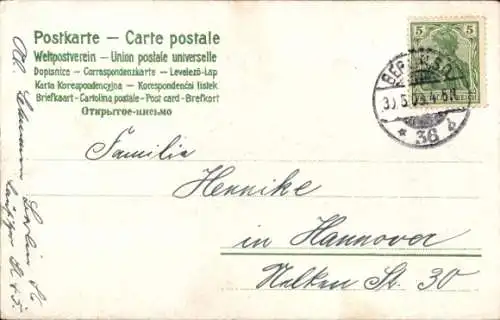 Postkarte — Carte postale
Weltpostverein — Union postale universelle
Dopisnice — Correspondenzkarte — Levelező-Lap
Karta Korespondencyjna — Korespondenční lístek
Briefkaart - Cartolina postale - Post card - Brefkort
Открытое-письмо
5 5
BERLIN S.O.
36
Familie
Hennike
in Hannover
Nelken St. 30
Berlin